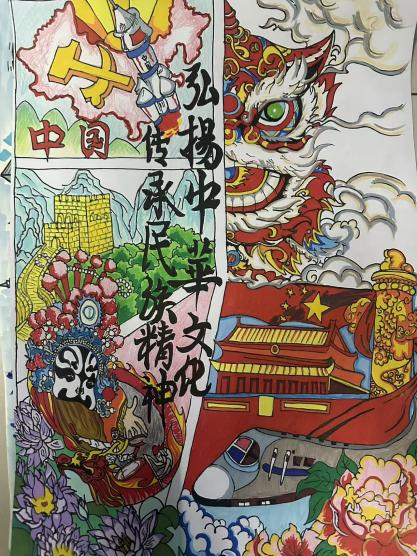 弘揚中華文化
传承民族精神
中国